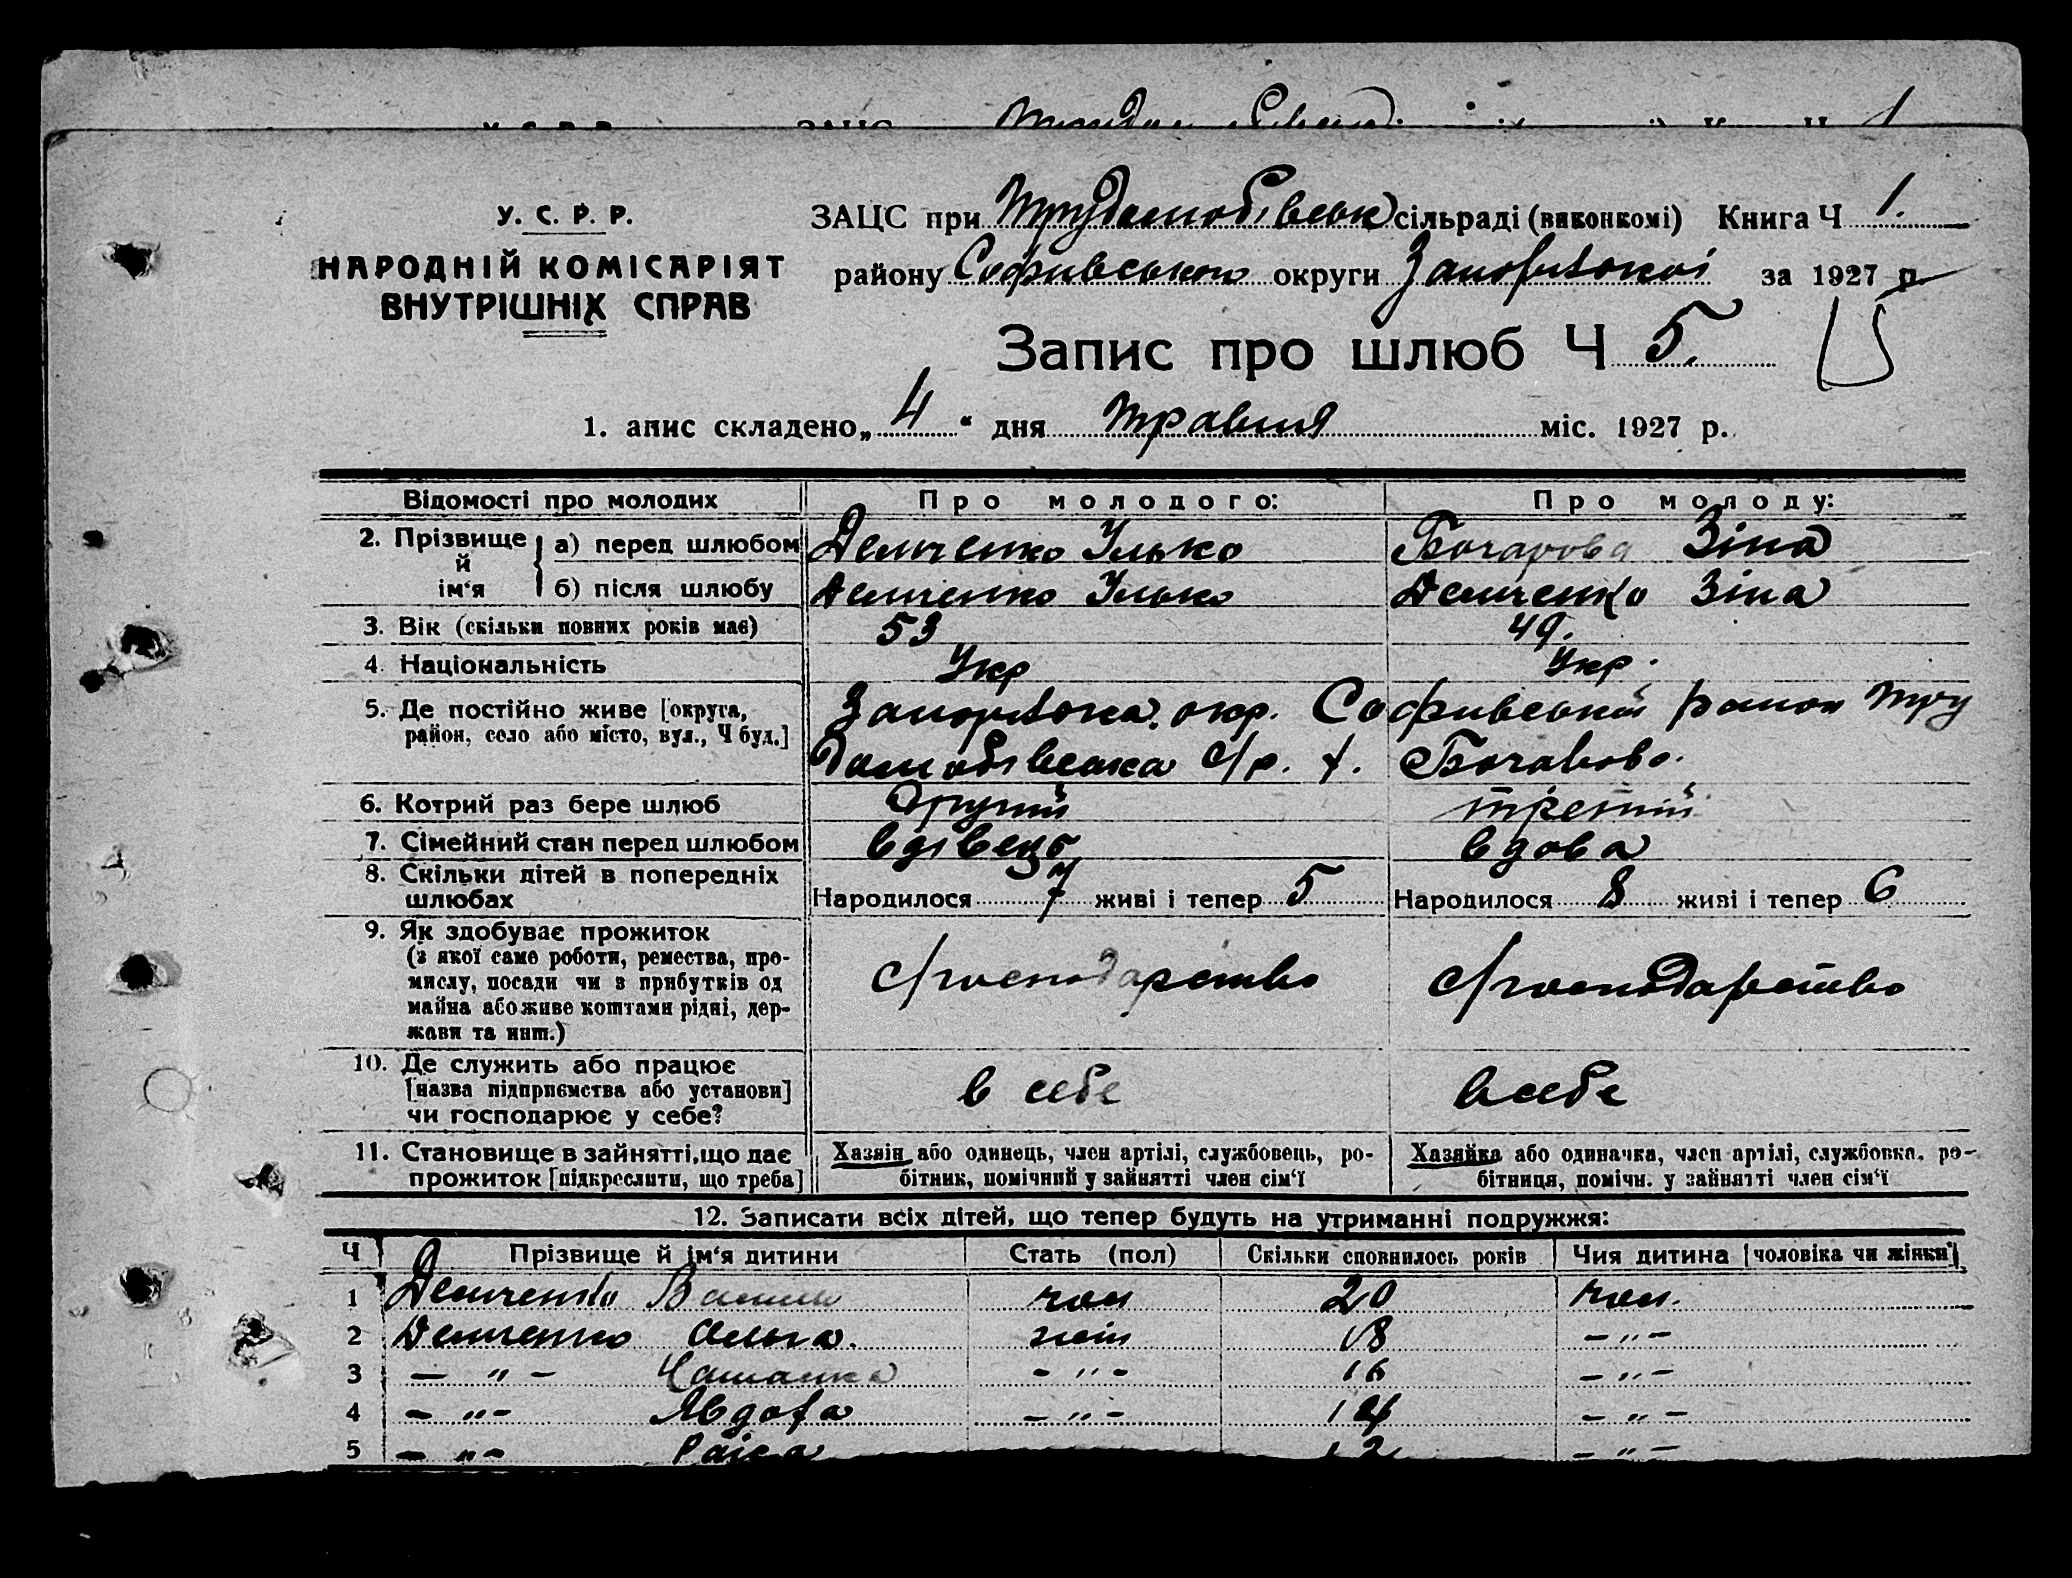 У. С. Р. Р.
НАРОДНІЙ КОМІСАРІЯТ
ВНУТРІШНІХ СПРАВ
ЗАЦС при Трудолюбівськ сільраді (виконкомі) Книга Ч 1.
району Софиевського округи Запорізької за 1927 р.
Запис про шлюб Ч 5.
1. апис складено „ 4 “ дня травня міс. 1927 р.
Відомості про молодих Про молодого: Про молоду:
2. Прізвище й ім‘я а) перед шлюбом Демченко Ілько Бочарова Зіна
б) після шлюбу Демченко Ілько Демченко Зіна
3. Вік (скільки повних років має) 53 49.
4. Національність Укр Укр.
5. Де постійно живе [округа, район, село або місто, вул., Ч буд.] Запорізька окр. Софиівський район Тру
долюбівська с/р. х. Бочарово.
6. Котрий раз бере шлюб другий третий
7. Сімейний стан перед шлюбом вдівець вдова
8. Скільки дітей в попередніх шлюбах Народилося 7 живі і тепер 5 Народилося 8 живі і тепер 6
9. Як здобуває прожиток
(з якої саме роботи, ремества, про-
мислу, посади чи з прибутків од
майна або живе коштами рідні, дер-
жави та инш.)
с/господарство с/господарство
10. Де служить або працює
[назва підприємства або установи]
чи господарює у себе?
в себе в себе
11. Становище в зайнятті, що дає
прожиток [підкреслити, що треба]
Хазяін або одинець, член артілі, службовець, ро-
бітник, помічний у зайнятті член сім‘ї
Хазяйка або одиначка, член артілі, службовка, ро-
бітниця, помічн. у зайнятті член сім‘ї
12. Записати всіх дітей, що тепер будуть на утриманні подружжя:
Ч Прізвище й ім‘я дитини Стать (пол) Скільки сповнилось років Чия дитина [чоловіка чи жінки]
1 Демченко чол 20 чол.
2 Демченко Ольга. жін 18 – „ –
3 – „ – – „ – 16 – „ –
4 – „ – Явдоха – „ – 14 – „ –
5 – „ – Раіса 12 – „ –